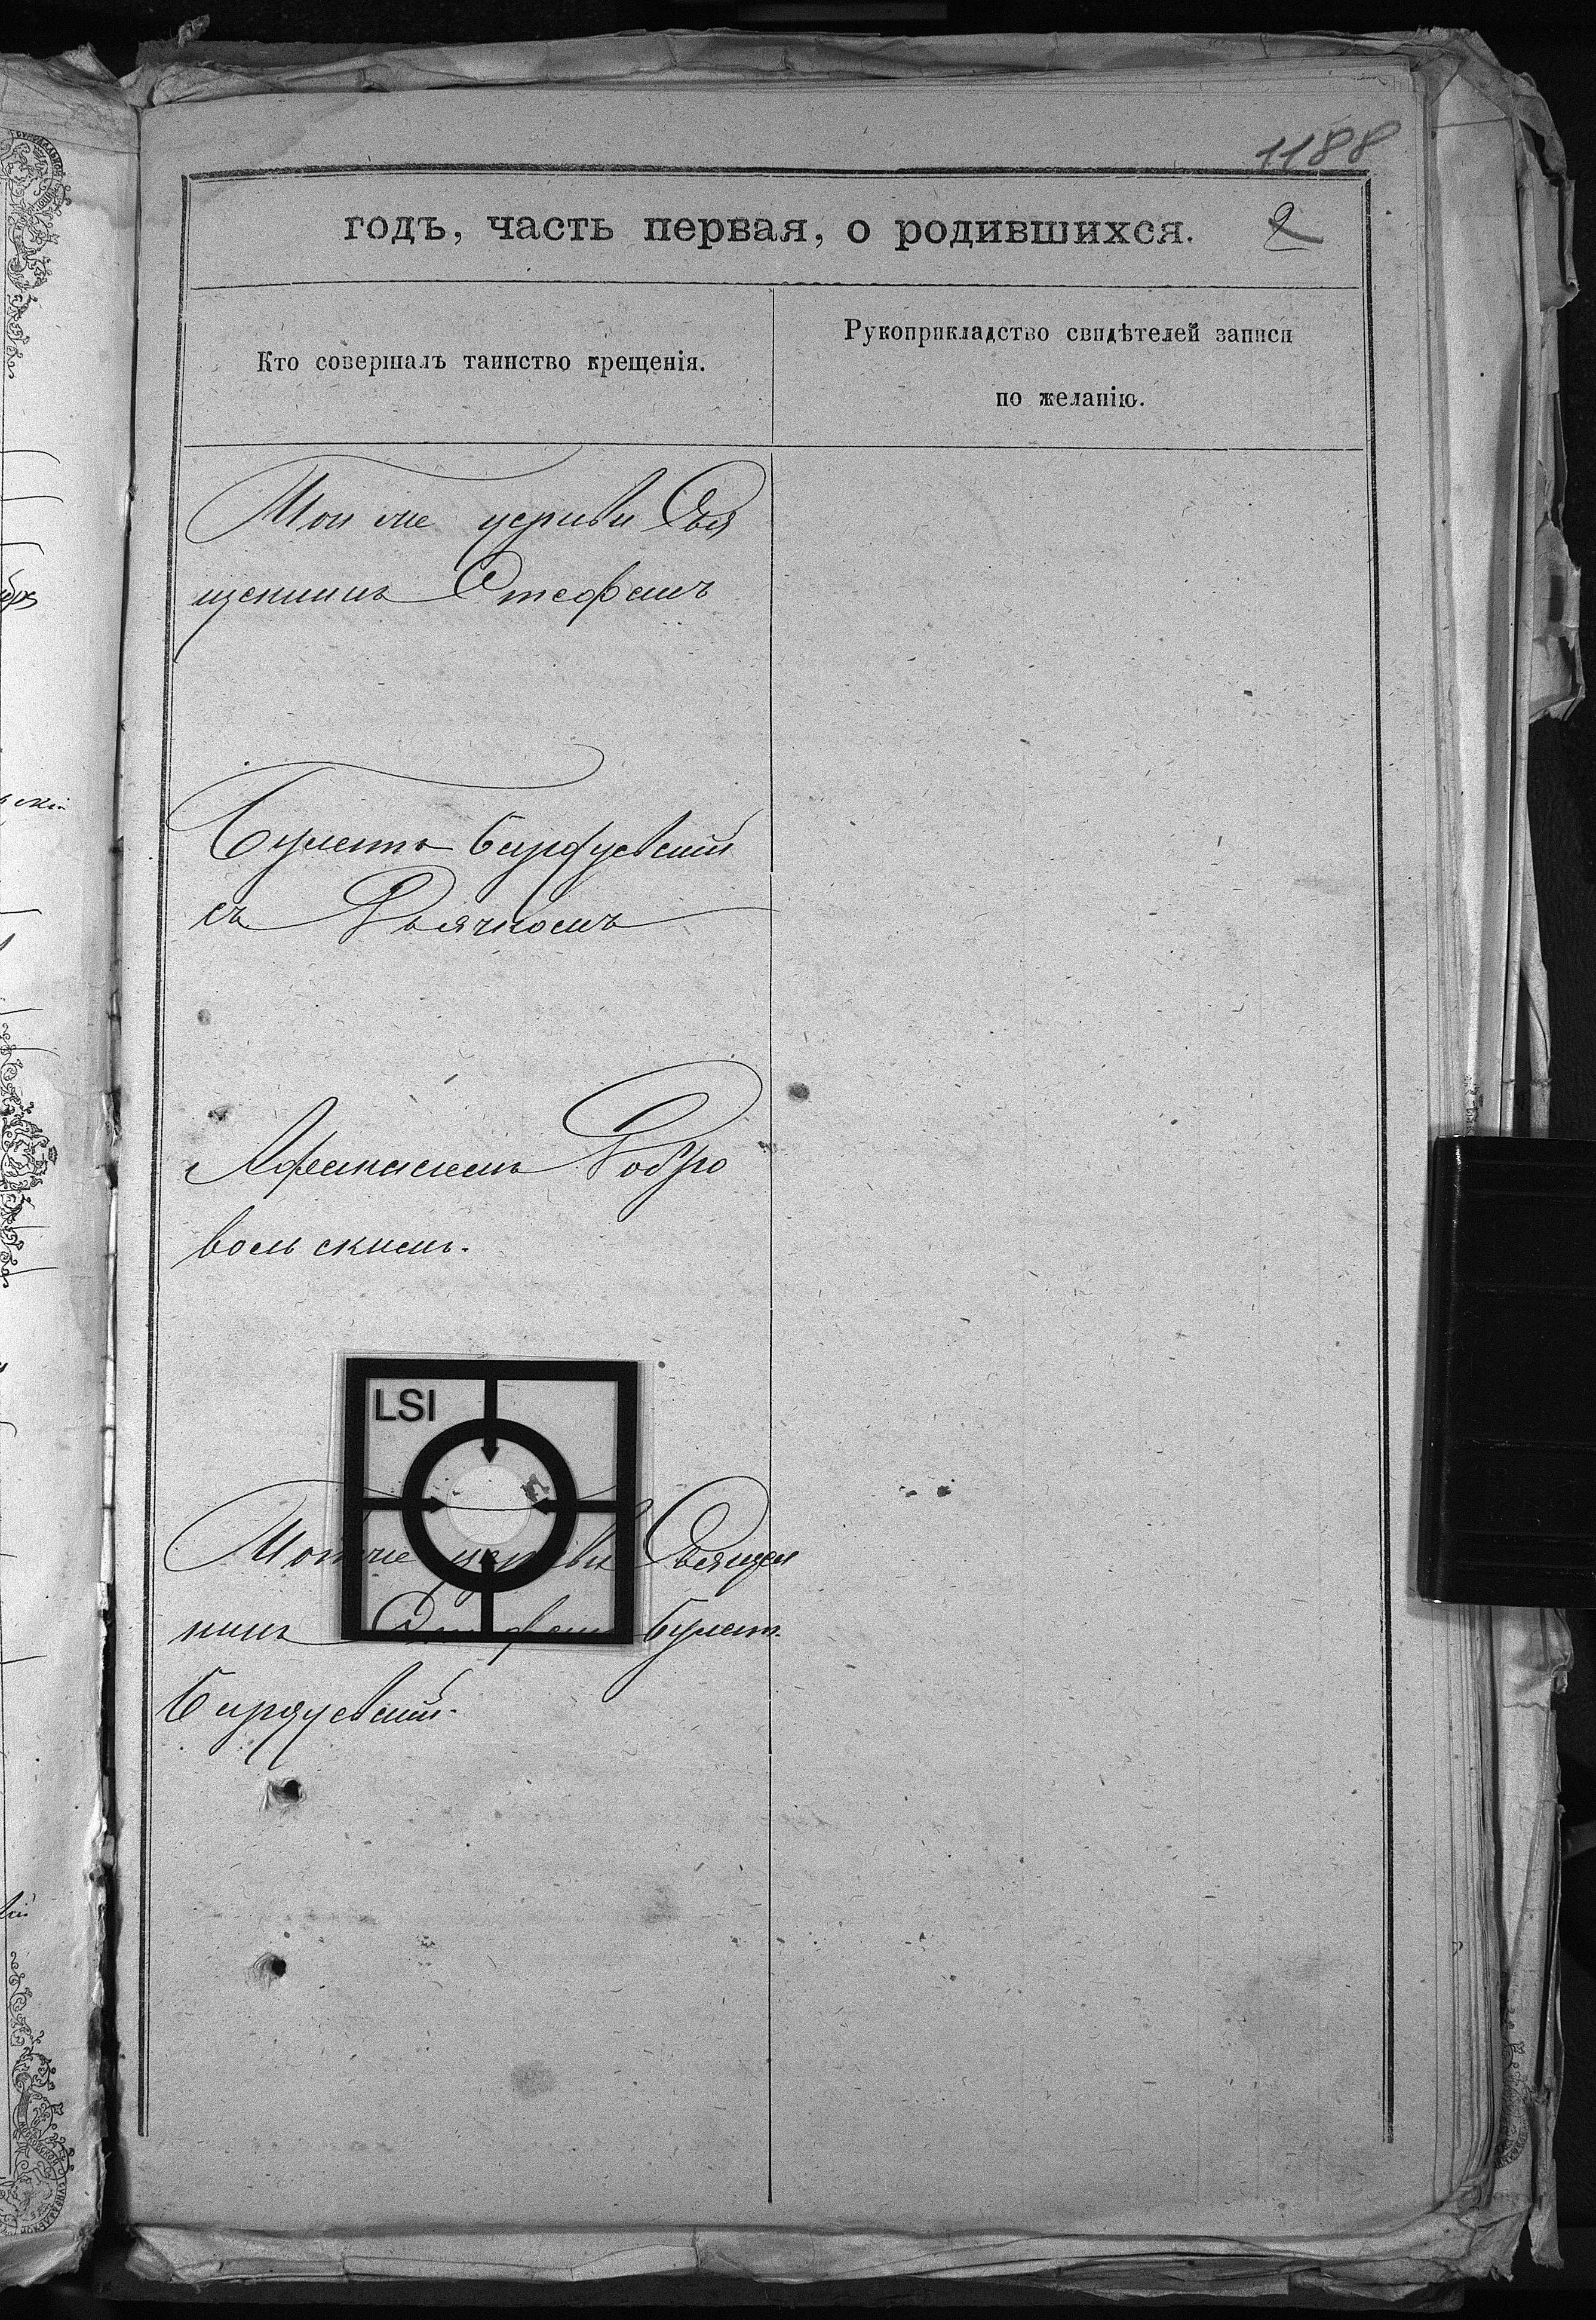 1188
годъ, часть первая, о родившихся. 2
Кто совершалъ таинство крещенія.
Рукоприкладство свидѣтелей записи
по желанію.
Той же церкви Свя
щенникъ Стефанъ
съ Дьячкомъ
Афанасіемъ Добро
вольскимъ.
LSI
Той же церкви Священ
никъ Стефанъ